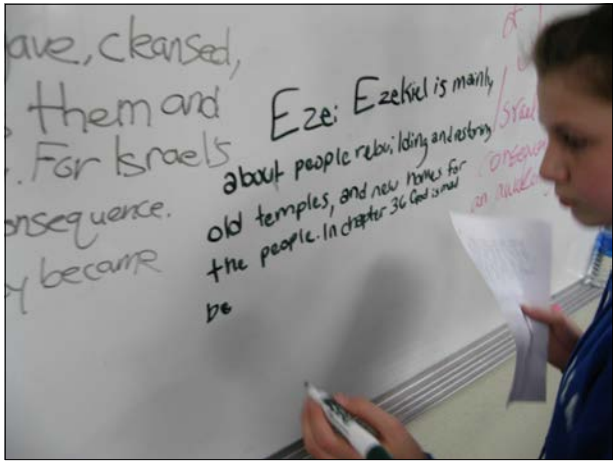 ave, cleansed,
them and
. For Israel's
onsequence.
y became
Eze: Ezekiel is mainly
about people rebuilding and restoring
old temples, and new homes for
the people. In chapter 36 God is mad
be
of
Israel
consequen
an awaken